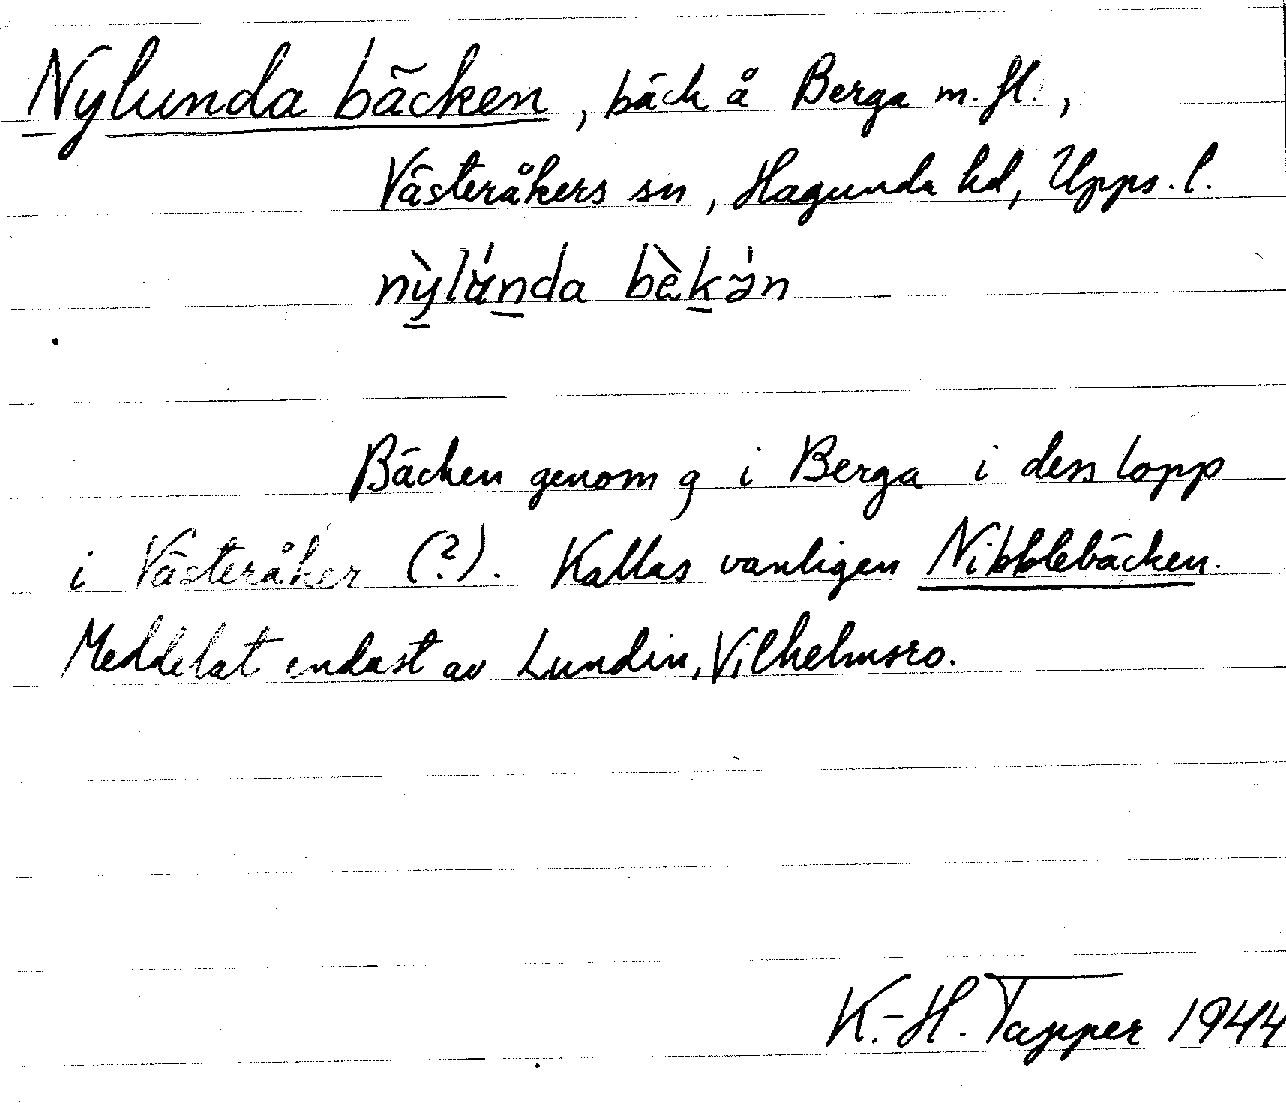 Nylunda bäcken, bäck å Berga m. fl.,
Västeråkers sn, Hagunda hd, Upps. l.
nỳlúnda bèkə́n
Bäcken genom g i Berga i dess lopp
i Västeråker (?). Kallas vanligen Nibblebäcken.
Meddelat endast av Lundin, Vilhelmsro.
K.-H. Tapper 1944